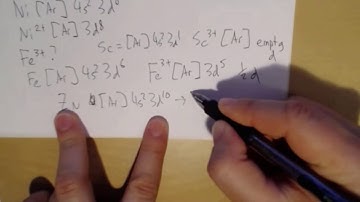 Ni [Ar] 4s² 3d⁸
Ni²⁺ [Ar] 3d⁸
Fe³⁺ ?
Sc = [Ar] 4s² 3d¹ Sc³⁺ [Ar] empty d
Fe [Ar] 4s² 3d⁶ Fe³⁺ [Ar] 3d⁵ ½ d
Zn [Ar] 4s² 3d¹⁰ →